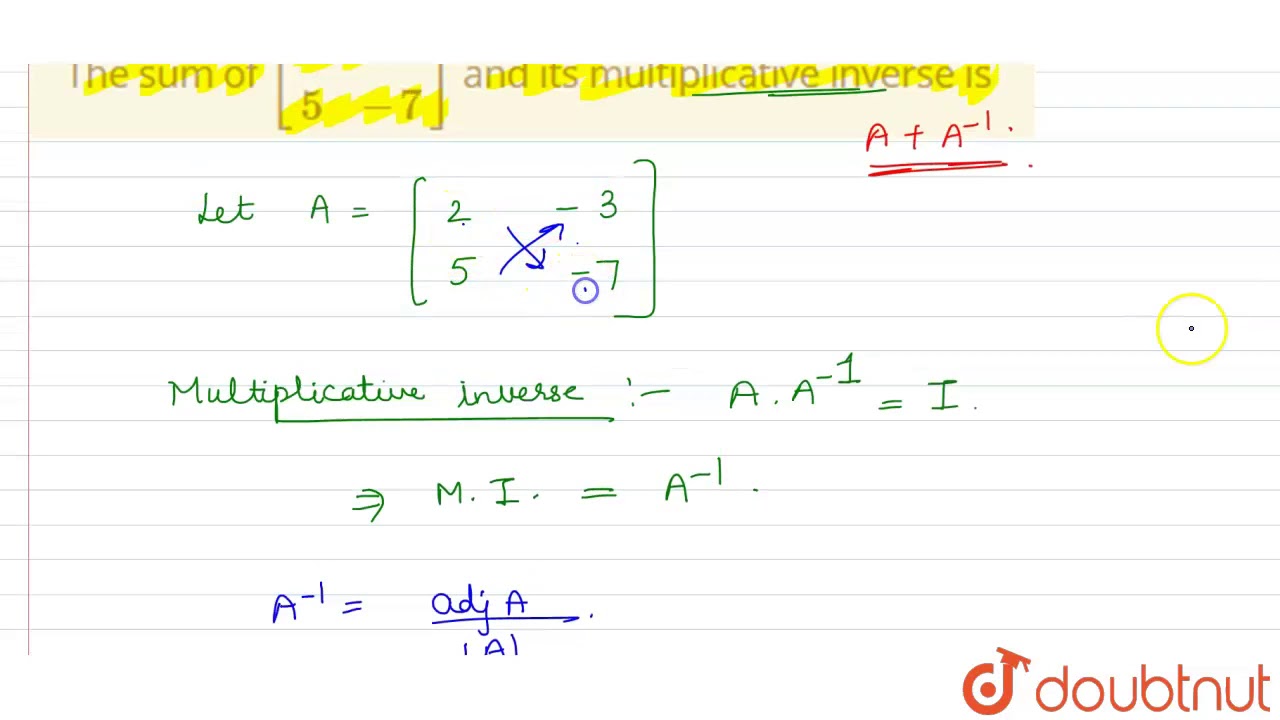 The sum of [ 5 -7 ] and its multiplicative inverse is
A + A⁻¹.
Let A = [ 2 -3
5 -7 ]
Multiplicative inverse :- A . A⁻¹ = I.
⇒ M. I. = A⁻¹.
A⁻¹ = adj A.
|A|
doubtnut